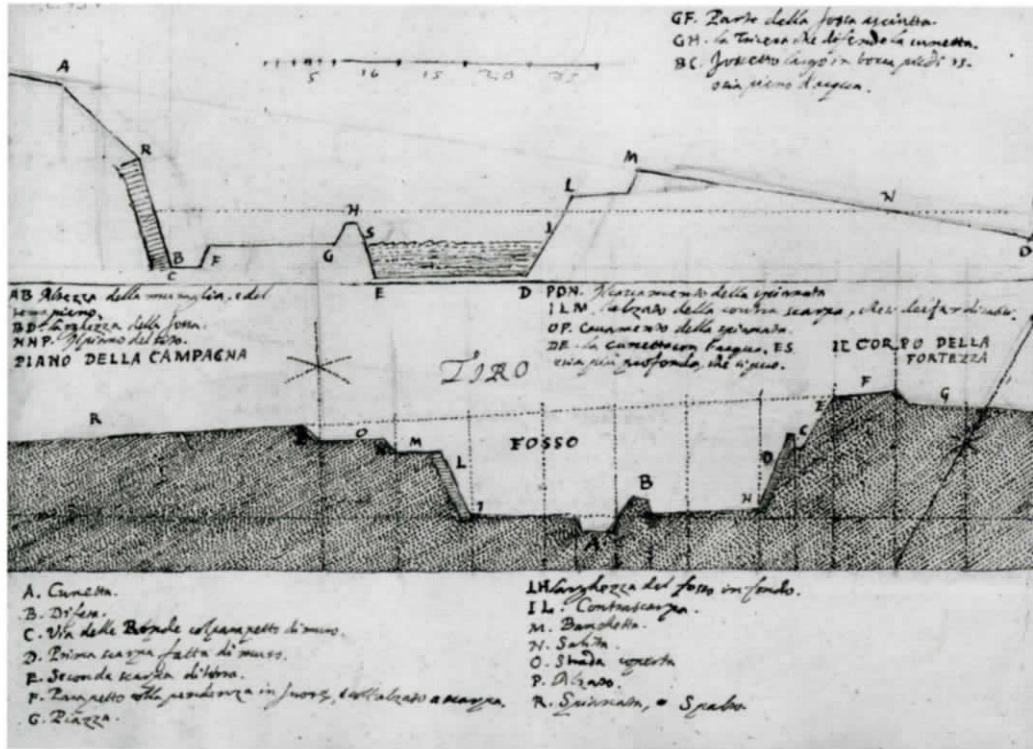 GF. Parte della fossa asciutta.
GH. la Trincera che difende la cunetta.
BC. fossetto largo in bocca piedi 15.
o sia pieno d'acqua.
5 10 15 20 25
A
R
M
L
N
H
S
I
B
F
G
C
E
D
O
AB Altezza della muraglia, e del
terrapieno.
BD. larghezza della fossa.
HNP. Il piano del
PIANO DELLA CAMPAGNA
PON. Alzamento della spianata
ILM. l'alzato della contra scarpa,
OP. Cavamento della spianata.
DE. la cunetta con l'acqua. ES
sia più profonda, che si può.
TIRO
IL CORPO DELLA
FORTEZZA
R
O
M
L
I
FOSSO
A
B
H
D
C
E
F
G
A. Cunetta.
B. Difesa.
C. Via delle Ronde col parapetto di muro.
D. Prima scarpa fatta di muro.
E. Seconda scarpa di terra.
F. Parapetto colla pendenza in fuori, e coll'alzato a scarpa.
G. Piazza.
IH larghezza del fosso in fondo.
IL. Contrascarpa.
M. Banchetta.
N. Salita.
O. Strada coperta
P. Alzato.
R. Spianata, o Spalto.